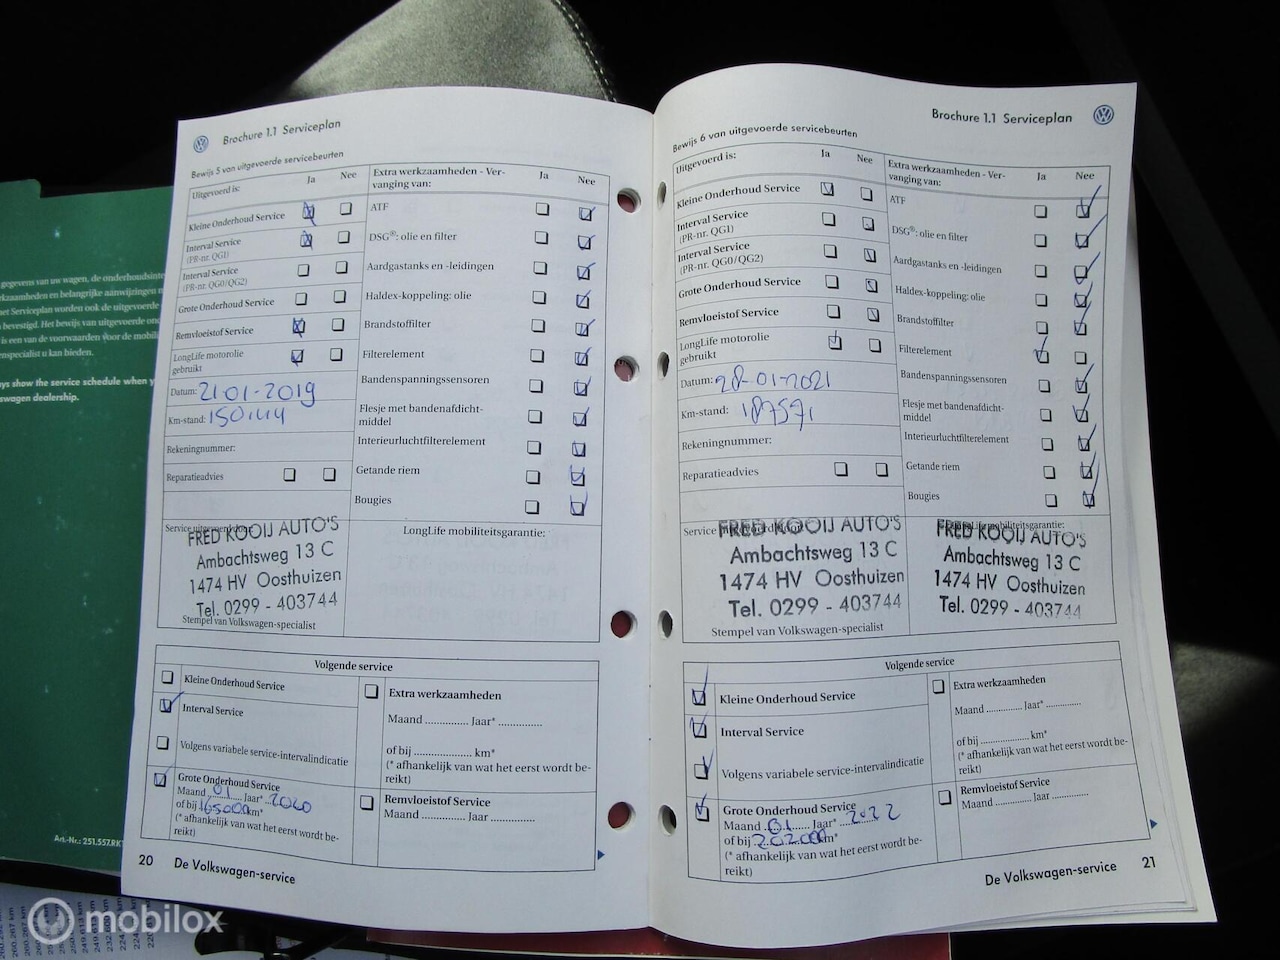 Brochure 1.1 Serviceplan
Bewijs 5 van uitgevoerde servicebeurten
Uitgevoerd is:
Ja
Nee
Kleine Onderhoud Service
Interval Service
(PR-nr. QG1)
Interval Service
(PR-nr. QG0/QG2)
Grote Onderhoud Service
Remvloeistof Service
LongLife motorolie
gebruikt
Datum: 21-01-2019
Km-stand: 150144
Rekeningnummer:
Reparatieadvies
Extra werkzaamheden - Ver-
vanging van:
Ja
Nee
ATF
DSG®: olie en filter
Aardgastanks en -leidingen
Haldex-koppeling: olie
Brandstoffilter
Filterelement
Bandenspanningssensoren
Flesje met bandenafdicht-
middel
Interieurluchtfilterelement
Getande riem
Bougies
Service uitgevoerd door:
FRED KOOIJ AUTO'S
Ambachtsweg 13 C
1474 HV Oosthuizen
Tel. 0299 - 403744
Stempel van Volkswagen-specialist
LongLife mobiliteitsgarantie:
Volgende service
Kleine Onderhoud Service
Interval Service
Volgens variabele service-intervalindicatie
Grote Onderhoud Service
Maand 01 Jaar* 2020
of bij 165000 km*
(* afhankelijk van wat het eerst wordt be-
reikt)
Extra werkzaamheden
Maand .............. Jaar* ..............
of bij .................. km*
(* afhankelijk van wat het eerst wordt be-
reikt)
Remvloeistof Service
Maand ............ Jaar ..............
20 De Volkswagen-service
Brochure 1.1 Serviceplan
Bewijs 6 van uitgevoerde servicebeurten
Uitgevoerd is:
Ja
Nee
Kleine Onderhoud Service
Interval Service
(PR-nr. QG1)
Interval Service
(PR-nr. QG0/QG2)
Grote Onderhoud Service
Remvloeistof Service
LongLife motorolie
gebruikt
Datum: 28-01-2021
Km-stand: 187571
Rekeningnummer:
Reparatieadvies
Extra werkzaamheden - Ver-
vanging van:
Ja
Nee
ATF
DSG®: olie en filter
Aardgastanks en -leidingen
Haldex-koppeling: olie
Brandstoffilter
Filterelement
Bandenspanningssensoren
Flesje met bandenafdicht-
middel
Interieurluchtfilterelement
Getande riem
Bougies
Service
FRED KOOIJ AUTO'S
Ambachtsweg 13 C
1474 HV Oosthuizen
Tel. 0299 - 403744
Stempel van Volkswagen-specialist
mobiliteitsgarantie:
FRED KOOIJ AUTO'S
Ambachtsweg 13 C
1474 HV Oosthuizen
Tel. 0299 - 403744
Volgende service
Kleine Onderhoud Service
Interval Service
Volgens variabele service-intervalindicatie
Grote Onderhoud Service
Maand 01 Jaar* 2022
of bij 202000 km*
(* afhankelijk van wat het eerst wordt be-
reikt)
Extra werkzaamheden
Maand ............ Jaar* ............
of bij ................ km*
(* afhankelijk van wat het eerst wordt be-
reikt)
Remvloeistof Service
Maand ............ Jaar ............
De Volkswagen-service 21
gegevens van uw wagen, de onderhoudsinte
rkzaamheden en belangrijke aanwijzingen
het Serviceplan worden ook de uitgevoerde
bevestigd. Het bewijs van uitgevoerde ond
is een van de voorwaarden voor de mobili
enspecialist u kan bieden.
ys show the service schedule when y
swagen dealership.
Art.-Nr.: 251.557.RK
mobilox